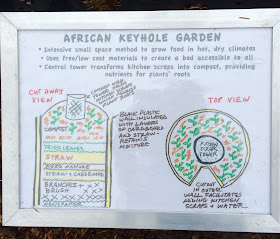 AFRICAN KEYHOLE GARDEN
• Intensive small space method to grow food in hot, dry climates
• Uses free/low cost materials to create a bed accessible to all
• Central tower transforms kitchen scraps into compost, providing
nutrients for plants' roots
CUT AWAY
VIEW
TOP VIEW
COMPOST
DRIED LEAVES
STRAW
MANURE
STRAW + CARDBOARD
BRANCHES +
BRUSH
NEWSPAPER
BLACK PLASTIC
WALL INSULATED
WITH LAYERS
OF CARDBOARD
AND STRAW-
RETAINS
MOISTURE
TOWER
CUTOUT
IN OUTER
WALL FACILITATES
ADDING KITCHEN
SCRAPS + WATER